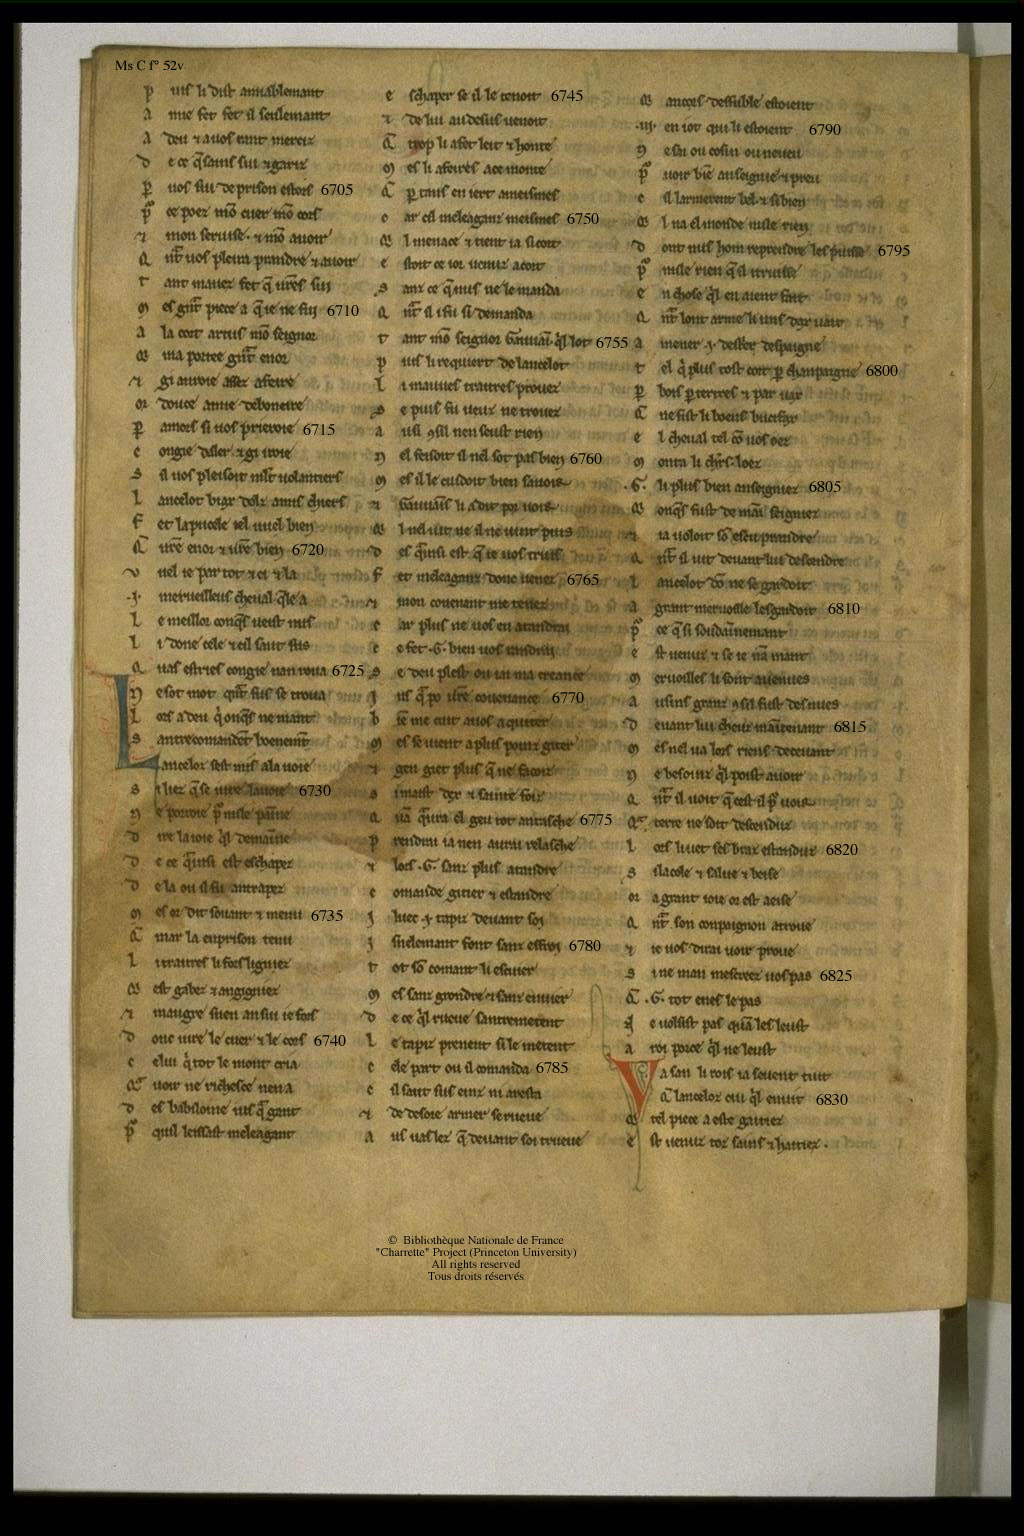 Ms C f° 52v
p uis li dist amiablemant
a mie fet fet il seulemant
a deu & a vos rant merciz
d e ce q̃ sains sui & gariz
p̲ vos sui de prison estors 6705
p̃ ce poez mõ cuer mõ cors
& mon servise & mõ avoir
q̃nt vos pleira prandre & avoir
t ant m'avez fet q̃ vr̃es sui
m es grãt piece a q̃ ie ne fui 6710
a la cort artus mõ seignor
q̃ m'a portee grãt enor
& g'i avroie assez afeire
or douce amie deboneire
p̲ amors si vos prieroie 6715
c ongie d'aler & g'i iroie
s il vos pleisoit mlt̃ volantiers
l ancelot biax dolz amis chiers
f et la pucele iel vuel bien
q̃ vr̃e enor & vr̃e bien 6720
v uel ie par tot & ci & la
.i. merveilleus cheval q̃le a
l e meillor conq̃s veist nus
l i done cele & cil saut sus
q as estries congie nan rova 6725
n e sot mot q̃nt sus se trova
l ors a deu q̃ onq̃s ne mant
s antrecomandẽt boenemẽt
L ancelot s'est mis a la voie
s i liez q̃ se iuré l'avoie 6730
n e porroie p̃ nule painne
d ire la ioie q̃l demainne
d e ce q̃insi est eschapez
d e la ou il fu antrapez
m es or dit sovant & menu 6735
q̃ mar l'a en prison tenu
l i traitres li forsligniez
q̃ est gabez & angigniez
& maugre suen an sui ie fors
d onc iure le cuer & le cors 6740
c elui q̃ tot le mont cria
q̃ avoir ne richesce n'en a
d es babiloine iusq̃ gant
p̃ quil leissast meleagant
e schaper se il le tenoit 6745
& de lui au desus venoit
q̃ trop li a fet leit & honte
m es li afeires a ce monte
q̃ p̲ tans en iert ameismes
c ar cil meleaganz meismes 6750
q̃l menace & tient ia si cort
e stoit ce ior venuz a cort
s anz ce q̃ nus ne le manda
q̃nt il i fu si demanda
t ant mõ seignor Gauvain q̃l lot 6755
p uis li requiert de lancelot
l i mauvés traitres provez
s e puis fu veuz ne trovez
a usi 9 sil n'en seust rien
n el feisoit il nel sot pas bien 6760
m es il le cuidoit bien savoir
& Gauvains li a dit por voir
q̃l nel vit ne il ne vint puis
d es q̃insi est q̃ ie nel truis
f et meleaganz donc venez 6765
& mon covenant me tenez
c ar plus ne vos en atandrai
c e fet .G. bien vos tandrai
s e deu plest ou iai ma creance
i usq̃ po vr̃e covenance 6770
b ien me cuit a vos aquiter
m es se vient a plus poinz giter
& g'en giet plus q̃ ne façoiz
s i m'aist dex & sainte foiz
q̃ia q̃nq̃ra el geu tot antasche 6775
p rendrai ia n'en avrai relasche
& lors .G. sanz plus atandre
c omande gitier & estandre
i luec .i. tapiz devant soi
i snelemant font sanz esfroi 6780
t ot sõ comant li escuier
m es sanz grondre & sanz enuier
d e ce q̃l rueve s'antremetent
l e tapiz prenent si le metent
c ele part ou il comanda 6785
c il saut sus einz n'i aresta
& de desore armer se rueve
a us vaslez q̃ devant soi trueve
q̃ ancors desfublé estoient
.iij. en i ot qui li estoient 6790
n e sai ou cosin ou neveu
p̃ voir biẽ anseignié & preu
c il l'armerent bel & si bien
q̃l n'a el monde nule rien
d ont nus hom reprendre les puisse 6795
p̃ nule rien q̃ il i truisse
e n chose q̃l en aient fait
q̃nt l'ont armé li uns d'ax vait
a mener .i. destrier d'espaigne
t el q̃ plus tost cort p̲ chanpaigne 6800
p̲ bois p̲ tertres & par vax
q̃ ne fist li boens bucifax
e l cheval tel cõ vos oez
m onta li chr̃s loez
.G. li plus bien anseigniez 6805
q̃ onq̃s fust de main seigniez
& ia voloit sõ escu prandre
q̃nt il vit devant lui descendre
l ancelot dõ ne se gardoit
a grant mervoille l'esgardoit 6810
p̃ ce q̃ si soudainnemant
e st venuz & se ie n'an mant
m ervoilles li sont avenues
a usins granz 9 sil fust des nues
d evant lui cheuz maintenant 6815
m es nel va lors riens decevant
n e besoinz q̃l poist avoir
q̃nt il voit q̃ c'est il p̃ voir
q̃ a terre ne soit descenduz
l ors li vet ses braz estanduz 6820
s i l'acole & salue & beise
or a grant ioie or est aeise
q̃nt son conpaignon a trové
& ie vos dirai voir prové
s i ne m'an mescreez vos pas 6825
q̃ .G. tot enes le pas
n e volsist pas q̃an l'esleust
a roi porce q̃l ne l'eust
V a san li rois ia sevent tuit
q̃ lancelot cui q̃l enuit 6830
q̃ tel piece a esté gaitiez
e st venuz toz sains & haitiez .
© Bibliothèque Nationale de France
"Charrette" Project (Princeton University)
All rights reserved
Tous droits réservés